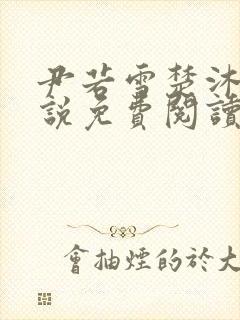 尹若雪楚沐
說免費閱讀
會抽煙的於大